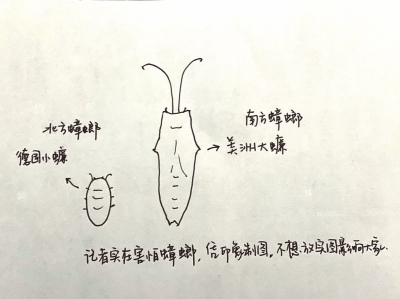 北方蟑螂
德国小蠊
南方蟑螂
美洲大蠊
记者实在害怕蟑螂，信印象制图。不想放实图影响大家。